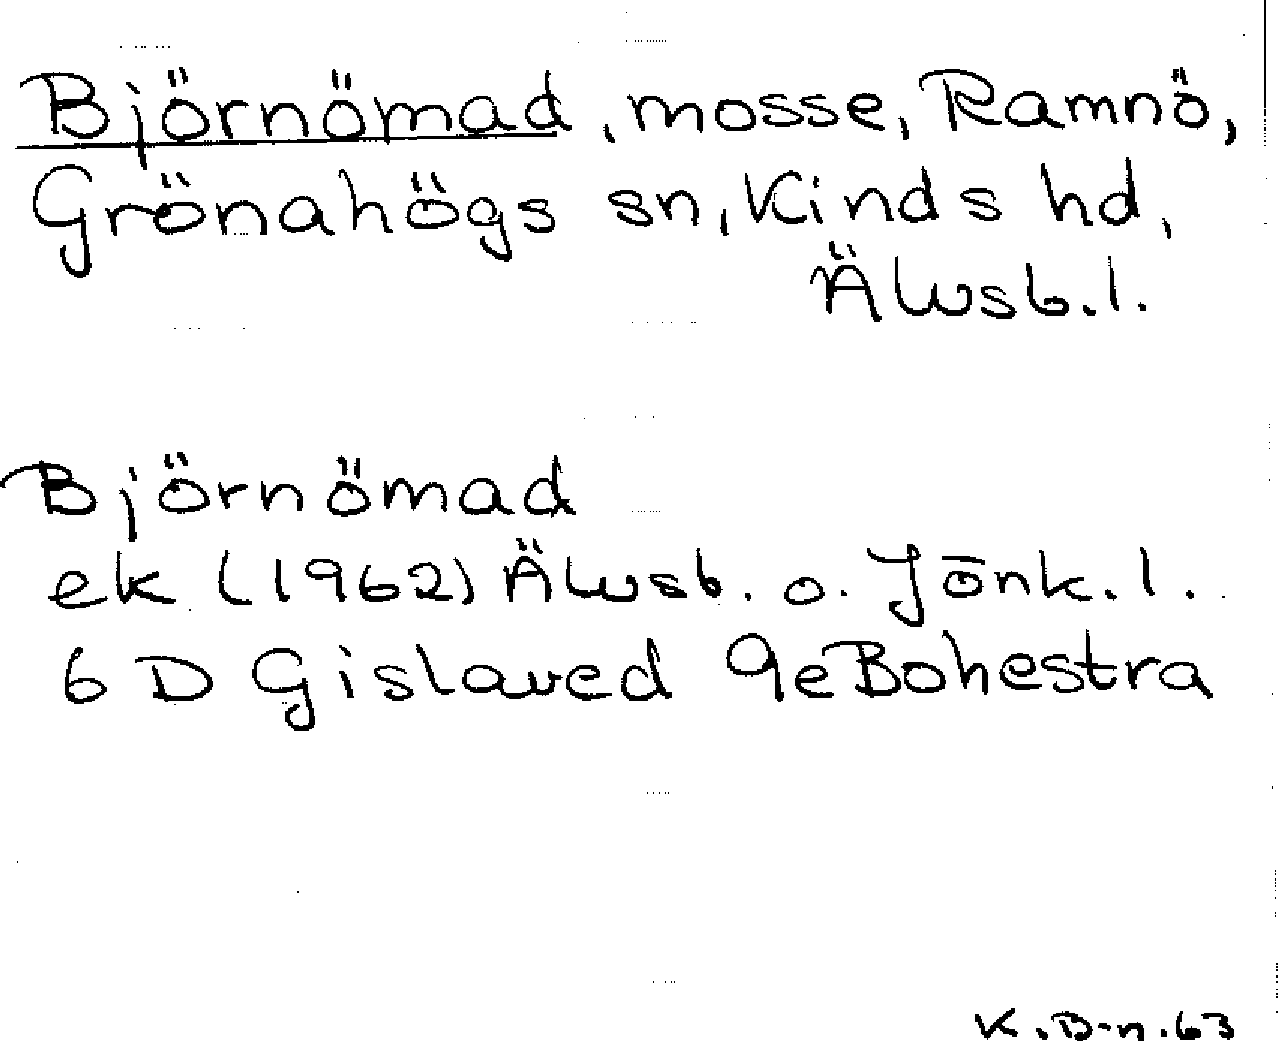 Björnömad, mosse, Ramnö,
Grönahögs sn, Kinds hd,
Älvsb.l.
Björnömad
ek (1962) Älvsb. o. Jönk.l.
6 D Gislaved 9e Bohestra
K.D-n.63